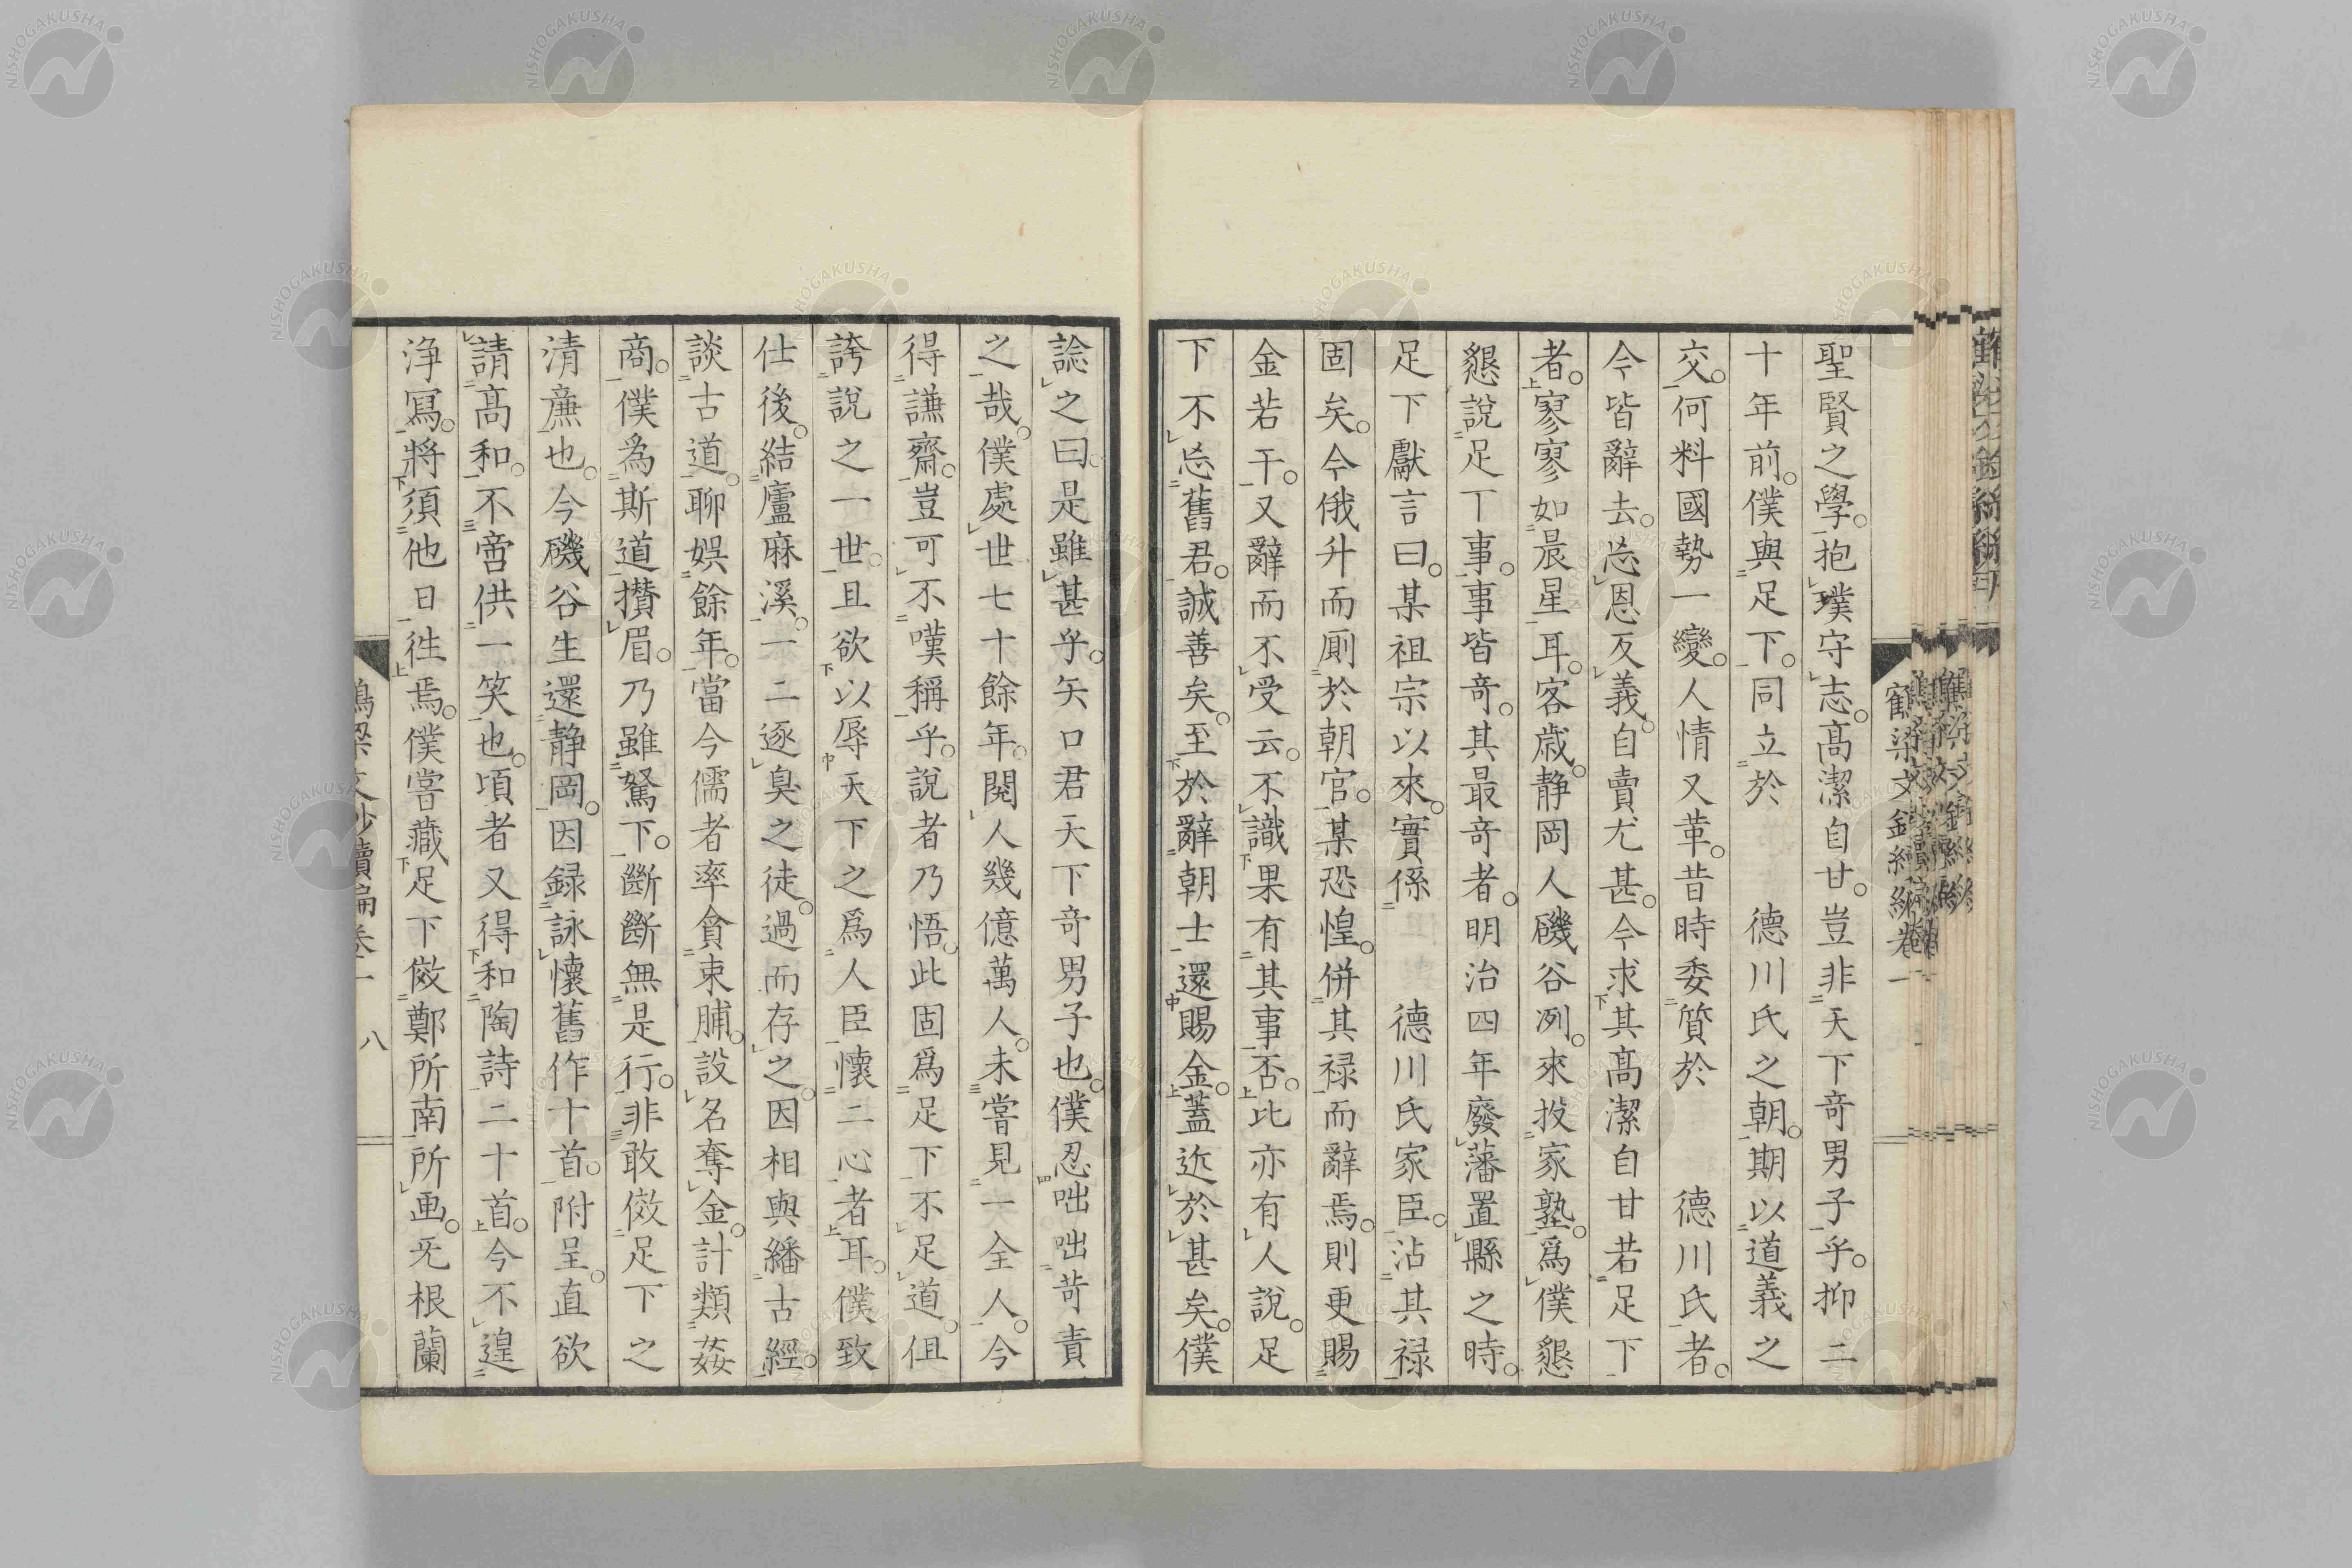 聖賢之學。抱璞守志。高潔自甘。豈非天下奇男子乎。抑二
十年前。僕與足下。同立於　德川氏之朝。期以道義之
交。何料國勢一變。人情又革。昔時委質於　德川氏者。
今皆辭去。忘恩反義。自賣尤甚。今求其髙潔自甘若足下
者。寥寥如晨星耳。客歲。静岡人磯谷冽。來投家塾。爲僕懇
懇說足下事。事皆奇。其最奇者。明治四年廢藩置縣之時。
足下獻言曰。某祖宗以來。實係　德川氏家臣。沾其禄
固矣。今俄升而厠於朝官。某恐惶。併其禄而辭焉。則更賜
金若干。又辭而不受云。不識果有其事否。此亦有人說。足
下不忘舊君。誠善矣。至於辭朝士還賜金。蓋近於甚矣。僕
諗之曰。是雖甚乎。矢口君天下奇男子也。僕忍咄咄苛責
之哉。僕處世七十餘年。閱人幾億萬人。未嘗見一全人。今
得謙齋。豈可不嘆稱乎。說者乃悟。此固爲足下不足道。但
誇說之一世。且欲以辱天下之爲人臣懷二心者耳。僕致
仕後。結廬麻溪。一二逐臭之徒。過而存之。因相與繙古經。
談古道。聊娯餘年。當今儒者率貪束脯。設名奪金。計類姦
商。僕為斯道攅眉。乃雖駑下。斷斷無是行。非敢傚足下之
清亷也。今磯谷生還静岡。因録詠懷舊作十首。附呈。直欲
請高和。不啻供一笑也。頃者又得和陶詩二十首。今不遑
浄寫。將須他日徃焉。僕嘗藏足下傚鄭所南所画。无根蘭